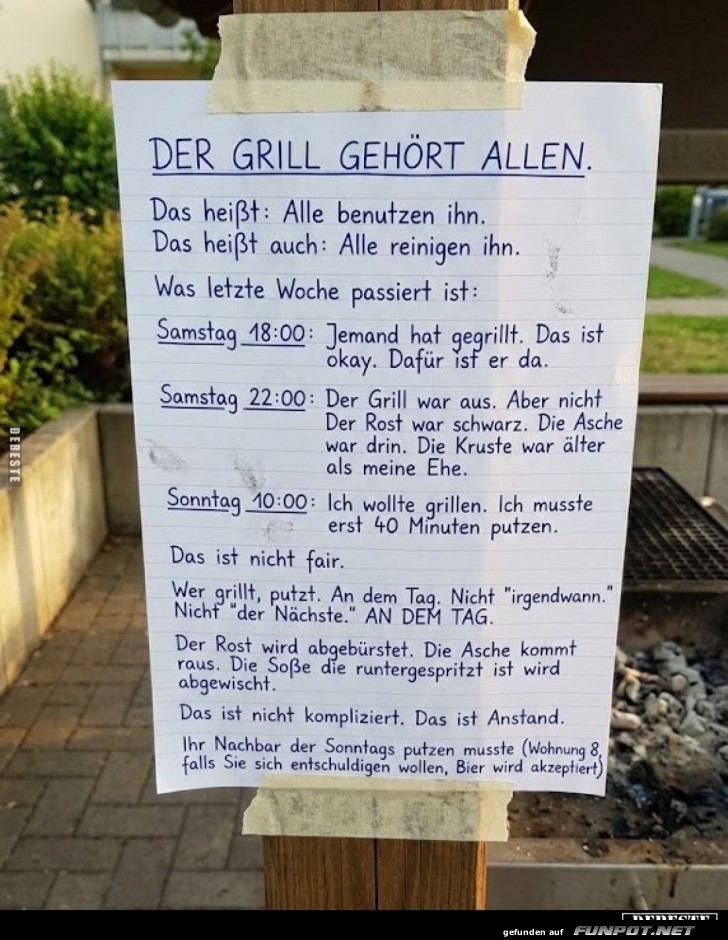 DER GRILL GEHÖRT ALLEN.
Das heißt: Alle benutzen ihn.
Das heißt auch: Alle reinigen ihn.
Was letzte Woche passiert ist:
Samstag 18:00: Jemand hat gegrillt. Das ist
okay. Dafür ist er da.
Samstag 22:00: Der Grill war aus. Aber nicht
Der Rost war schwarz. Die Asche
war drin. Die Kruste war älter
als meine Ehe.
Sonntag 10:00: Ich wollte grillen. Ich musste
erst 40 Minuten putzen.
Das ist nicht fair.
Wer grillt, putzt. An dem Tag. Nicht "irgendwann."
Nicht "der Nächste." AN DEM TAG.
Der Rost wird abgebürstet. Die Asche kommt
raus. Die Soße die runtergespritzt ist wird
abgewischt.
Das ist nicht kompliziert. Das ist Anstand.
Ihr Nachbar der Sonntags putzen musste (Wohnung 8,
falls Sie sich entschuldigen wollen, Bier wird akzeptiert)
DEBESTE
DEBESTE
gefunden auf FUNPOT.NET